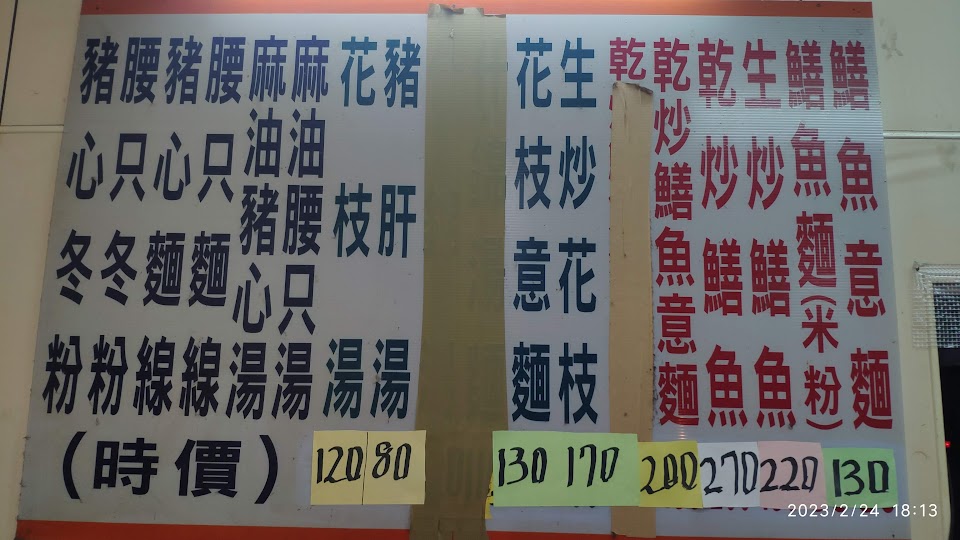 鱔魚意麵
鱔魚麵(米粉)
130
生炒鱔魚
220
乾炒鱔魚
270
乾炒鱔魚意麵
200
乾
生炒花枝
170
花枝意麵
130
豬肝湯
80
花枝湯
120
麻油腰只湯
麻油豬心湯
腰只麵線
豬心麵線
腰只冬粉
豬心冬粉
(時價)
2023/2/24 18:13